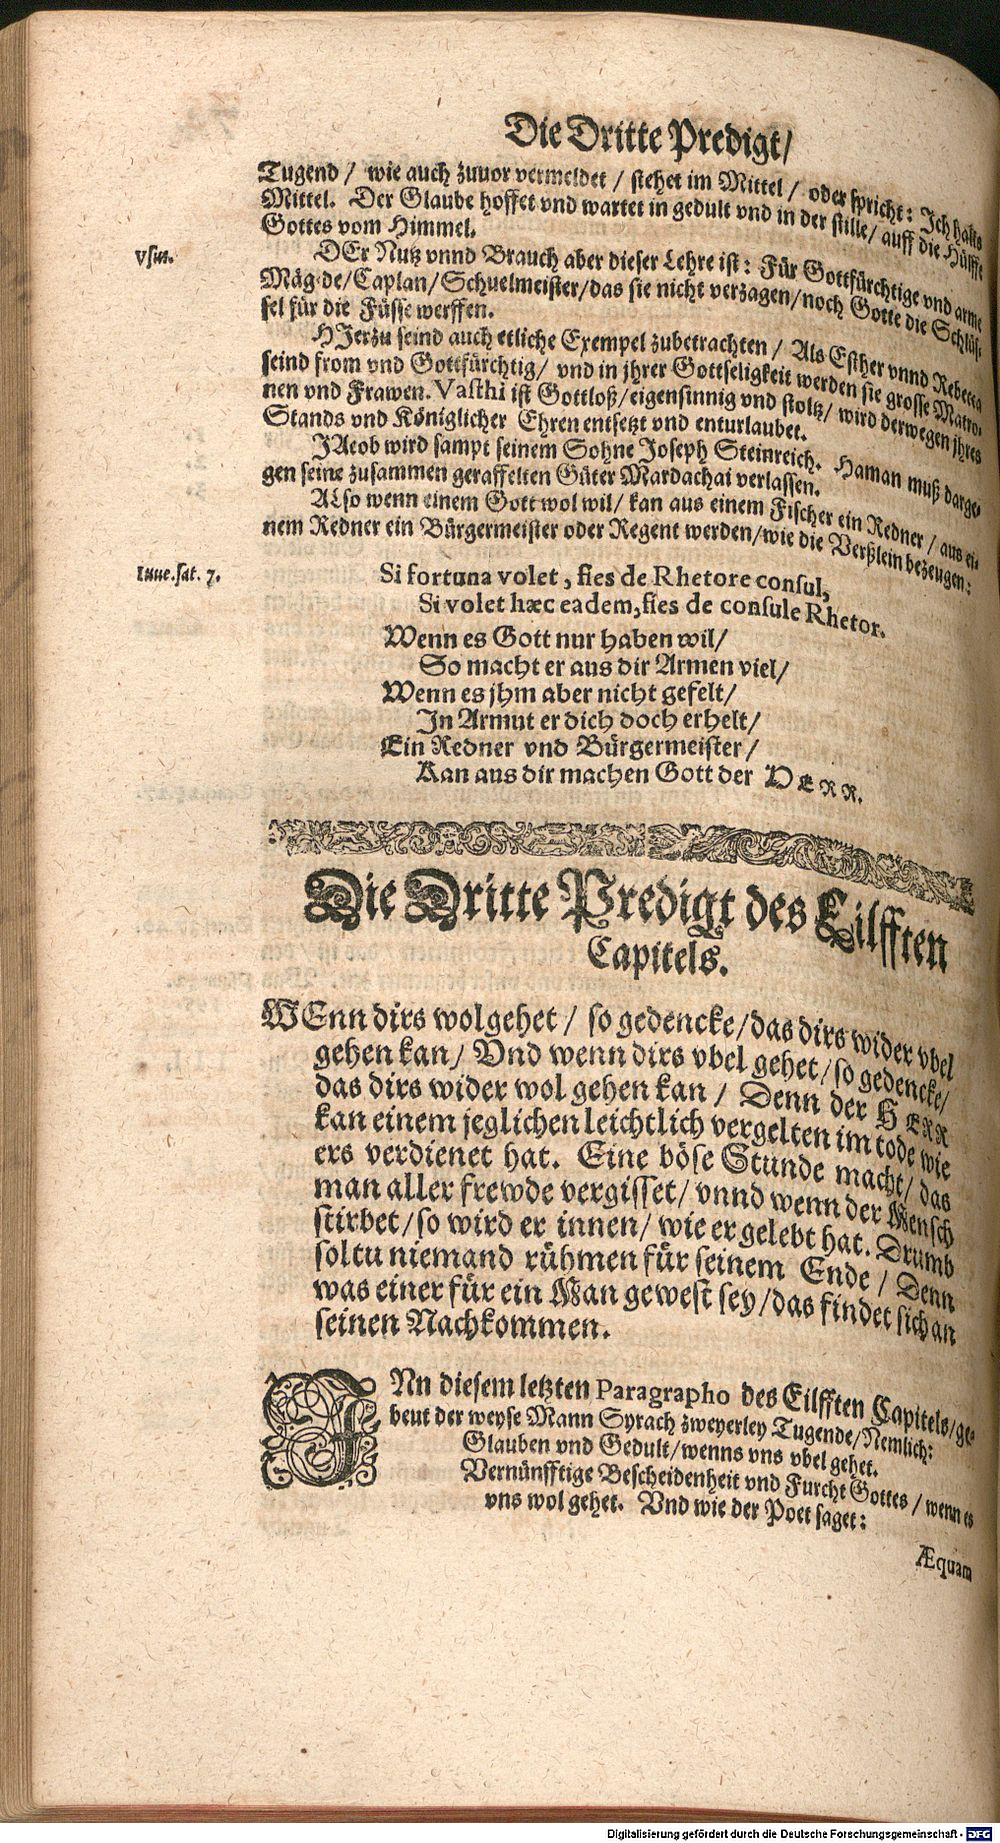 Die Dritte Predigt/
Tugend / wie auch zuuor vermeldet / stehet im Mittel / oder spricht: Ich halts
Mittel. Der Glaube hoffet vnd wartet in gedult vnd in der stille/ auff die Hülffe
Gottes vom Himmel.
Vsus.
DEr Nutz vnnd Brauch aber dieser Lehre ist: Für Gottfürchtige vnd arme
Mägde/Caplan/Schuelmeister/das sie nicht verzagen/noch Gotte die Schlüs-
sel für die Füsse werffen.
HIerzu seind auch etliche Exempel zubetrachten / Als Esther vnnd Rebecca
seind from vnd Gottfürchtig/ vnd in jhrer Gottseligkeit werden sie grosse Matro-
nen vnd Frawen. Vasthi ist Gottloß/eigensinnig vnd stoltz/ wird derwegen jhres
Stands vnd Königlicher Ehren entsetzt vnd enturlaubet.
JAcob wird sampt seinem Sohne Joseph Steinreich. Haman muß darge-
gen seine zusammen geraffelten Güter Mardachai verlassen.
ALso wenn einem Gott wol wil/ kan aus einem Fischer ein Redner / aus ei-
nem Redner ein Bürgermeister oder Regent werden/wie die Verßlein bezeugen:
Iuue.sat. 7.
Si fortuna volet, fies de Rhetore consul,
Si volet hæc eadem, fies de consule Rhetor.
Wenn es Gott nur haben wil/
So macht er aus dir Armen viel/
Wenn es jhm aber nicht gefelt/
In Armut er dich doch erhelt/
Ein Redner vnd Bürgermeister/
Kan aus dir machen Gott der HERR.
Die Dritte Predigt des Eilfften
Capitels.
WEnn dirs wolgehet / so gedencke/das dirs wider vbel
gehen kan/ Vnd wenn dirs vbel gehet/so gedencke/
das dirs wider wol gehen kan / Denn der HERR
kan einem jeglichen leichtlich vergelten im tode wie
ers verdienet hat. Eine böse Stunde macht/ das
man aller frewde vergisset/ vnnd wenn der Mensch
stirbet/so wird er innen/ wie er gelebt hat. Drumb
soltu niemand rühmen für seinem Ende / Denn
was einer für ein Man gewest sey/das findet sich an
seinen Nachkommen.
INn diesem letzten Paragrapho des Eilfften Capitels/ge-
beut der weyse Mann Syrach zweyerley Tugende/Nemlich:
Glauben vnd Gedult/wenns vns vbel gehet.
Vernünfftige Bescheidenheit vnd Furcht Gottes / wenn es
vns wol gehet. Vnd wie der Poet saget:
Æquam
Digitalisierung gefördert durch die Deutsche Forschungsgemeinschaft - DFG